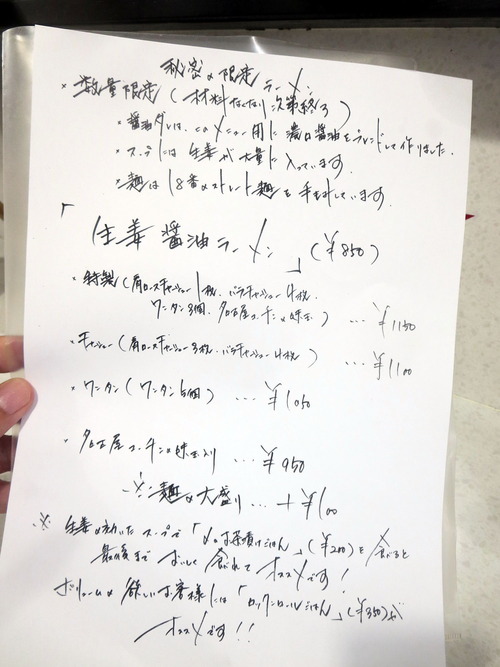 秘密の限定ラーメン
* 数量限定(材料なくなり次第終了)
* 醤油ダレは、このメニュー用に濃口醤油をブレンドして作りました。
* スープには生姜が大量に入っています。
* 麺は18番のストレート麺を手もみしています。
「生姜醤油ラーメン」(¥850)
* 特製(肩ロースチャーシュー1枚、バラチャーシュー4枚、
ワンタン3個、名古屋コーチンの味玉) … ¥1150
* チャーシュー(肩ロースチャーシュー3枚、バラチャーシュー4枚) … ¥1100
* ワンタン(ワンタン5個) … ¥1050
* 名古屋コーチンの味玉入り … ¥950
※麺の大盛り … +¥100
※ 生姜の効いたスープで「お茶漬けごはん」(¥200)を食べると
最後までおいしく食べれてオススメです!
ボリュームの欲しいお客様には「ロックンロールごはん」(¥350)が
オススメです!!